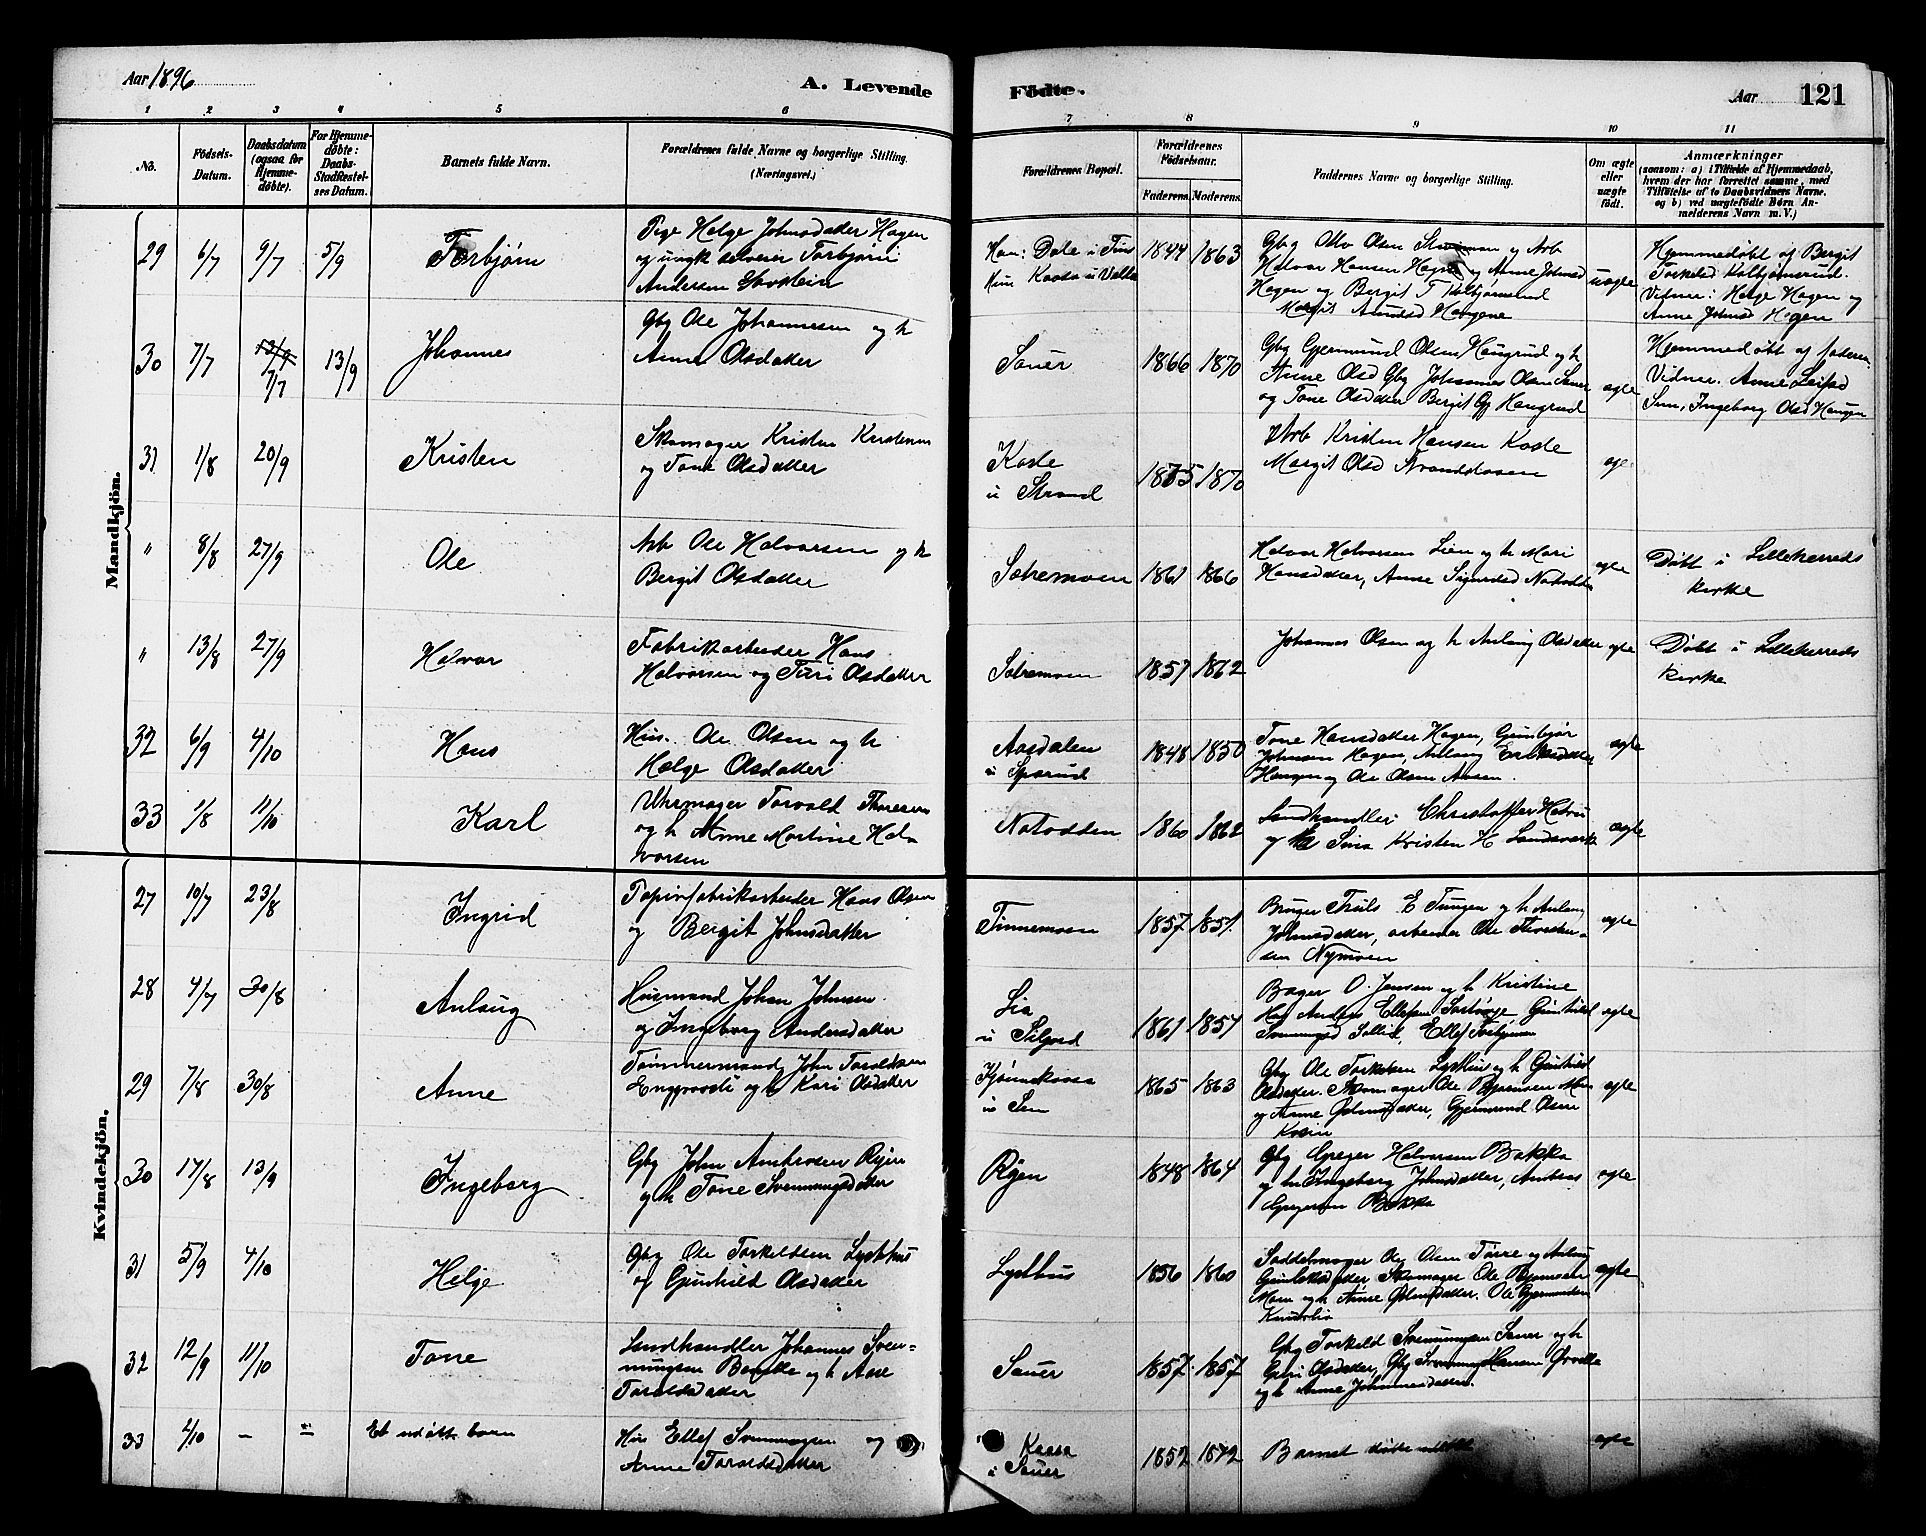 Aar 1896
A. Levende
Födte.
Aar 121
1 2 3 4 5 6 7 8 9 10 11
No.
Födsels-
Datum.
Daabsdatum
(ogsaa for
Hjemme-
döbte).
For Hjemme-
döbte:
Daabs-
Stadfæstel-
ses Datum.
Barnets fulde Navn.
Forældrenes fulde Navne og borgerlige Stilling.
(Næringsvei.)
Forældrenes Bopæl.
Forældrenes
Födselsaar.
Faderens. Moderens.
Faddernes Navne og borgerlige Stilling.
Om ægte
eller
uægte
födt.
Anmærkninger
(saasom: a) i Tilfælde af Hjemmedaab,
hvem der har forrettet samme, med
Tilföielse af to Daabsvidners Navne.
og b) ved uægtefödte Börn An-
melderens Navn m. V.)
Mandkjön.
29 6/7 9/7 5/9 Torbjørn
Pige Helge Johnsdatter Hagen
og ungk selveier Torbjørn
Andersen
Dale i Tins
Kaasa i
1844 1863
Gbg Olav Olsen og Arb
Halvor Hansen og Anne Johnsd
Hagen og Bergit T Kolbjørnsrud
Margit
uægte
Hjemmedøbt af Bergit
Torkelsd Kolbjørnsrud.
Vidner: Helge Hagen og
Anne Johnsd Hagen
30 7/7 13/9 7/7 13/9 Johannes
Gbg Ole Johannesen og h
Anne Olsdatter
Sauer
1866 1870
Gbg Gjermund Olsen Haugrud og h
Anne Olsd Gbg Johannes Olsen Sauer
og Tone Olsdatter Bergit Haugrud
ægte
Hjemmedøbt af faderen
Vidner: Anne Leifsd
Sem, Ingeborg Olsd Haugen
31 1/8 20/9 Kristen
Skomager Kristen Kristensen
og Tone Olsdatter
Kaste
u Strand
1875 1870
Arb Kristen Hansen Kaste
Margit Olsd
" 8/8 27/9 Ole
Arb Ole Halvorsen og h
Bergit Olsdatter
Sætremoen
1861 1866
Halvor Halvorsen Lien og h Mari
Hansdatter, Anne Sigurdsd Notodden
ægte
Døbt i Lilleherreds
kirke
" 13/8 27/9 Halvor
Fabrikarbeider Hans
Halvorsen og Turi Olsdatter
Sætremoen
1857 1862
Johannes Olsen og h Anlaug Olsdatter
ægte
Døbt i Lilleherreds
kirke
32 6/9 4/10 Hans
Hus. Ole Olsen og h
Helge Olsdatter
Aasdalen
u Sperud
1848 1850
Tone Hansdatter Hagen, Gunbjør
Johnsen Hagen, Anlaug Eriksdatter
Haugen og Ole Olsen
ægte
33 1/8 11/10 Karl
Uhrmager Torvald Thoresen
og h Anne Martine Hal-
vorsen
Notodden
1860 1862
Landhandler Christoffer
og Sina Kristen H Landsverk
ægte
Kvindekjön.
27 10/7 23/8 Ingrid
Papirfabrikarbeider Hans Olsen
og Bergit Johnsdatter
Tinnemoen
1857 1851
Bruger Truls E Tungen og h Anlaug
Johnsdatter, arbeider Ole
sen Nymoen
ægte
28 4/7 30/8 Anlaug
Husmand Johan Johnsen
og Ingeborg Andersdatter
Lia
u
1861 1857
Bager O. Jensen og h Kristine
Anders Ellefsen Gunhild
Ellef Torbjørnsen
ægte
29 7/8 30/8 Anne
Tømmermand John Toroldsen
og h Kari Olsdatter
u Sem
1865 1863
Gbg Ole Torkelsen Lysthus og h Gunhild
Olsdatter. Skomager Ole Bjørnsen Moen
og Anne Johnsdatter, Gjermund Olsen
ægte
30 17/8 13/9 Ingeborg
Gbg John Ambrosen Ryen
og h Tone Svenningsdatter
Ryen
1848 1864
Gbg Greger Halvorsen Bakka
og h Ingeborg Johnsdatter, Andreas
Gregersen Bakka
ægte
31 5/9 4/10 Helge
Gbg Ole Torkeldsen Lysthus
og Gunhild Olsdatter
Lysthus
1856 1860
Saddelmager Ole Olsen og Anlaug
Gunleiksdatter Skomager Ole Bjørnsen
Moen og h Anne Johnsdatter. Ole Gjermundsen
ægte
32 12/9 11/10 Tone
Landhandler Johannes Sven-
ningsen og h Aase
Toroldsdatter
Sauer
1857 1857
Gbg Torkeld Svenningsen Sauer og h
Olsdatter, Gbg Svenning Hansen Ørvella
og h Anne Johannesdatter.
ægte
33 2/10 – = Et udøbt barn
Hus Ellef Svenningsen og
Anne Toroldsdatter
Kaasa
u Sauer
1852 1872
Barnet døde udøbt
ægte